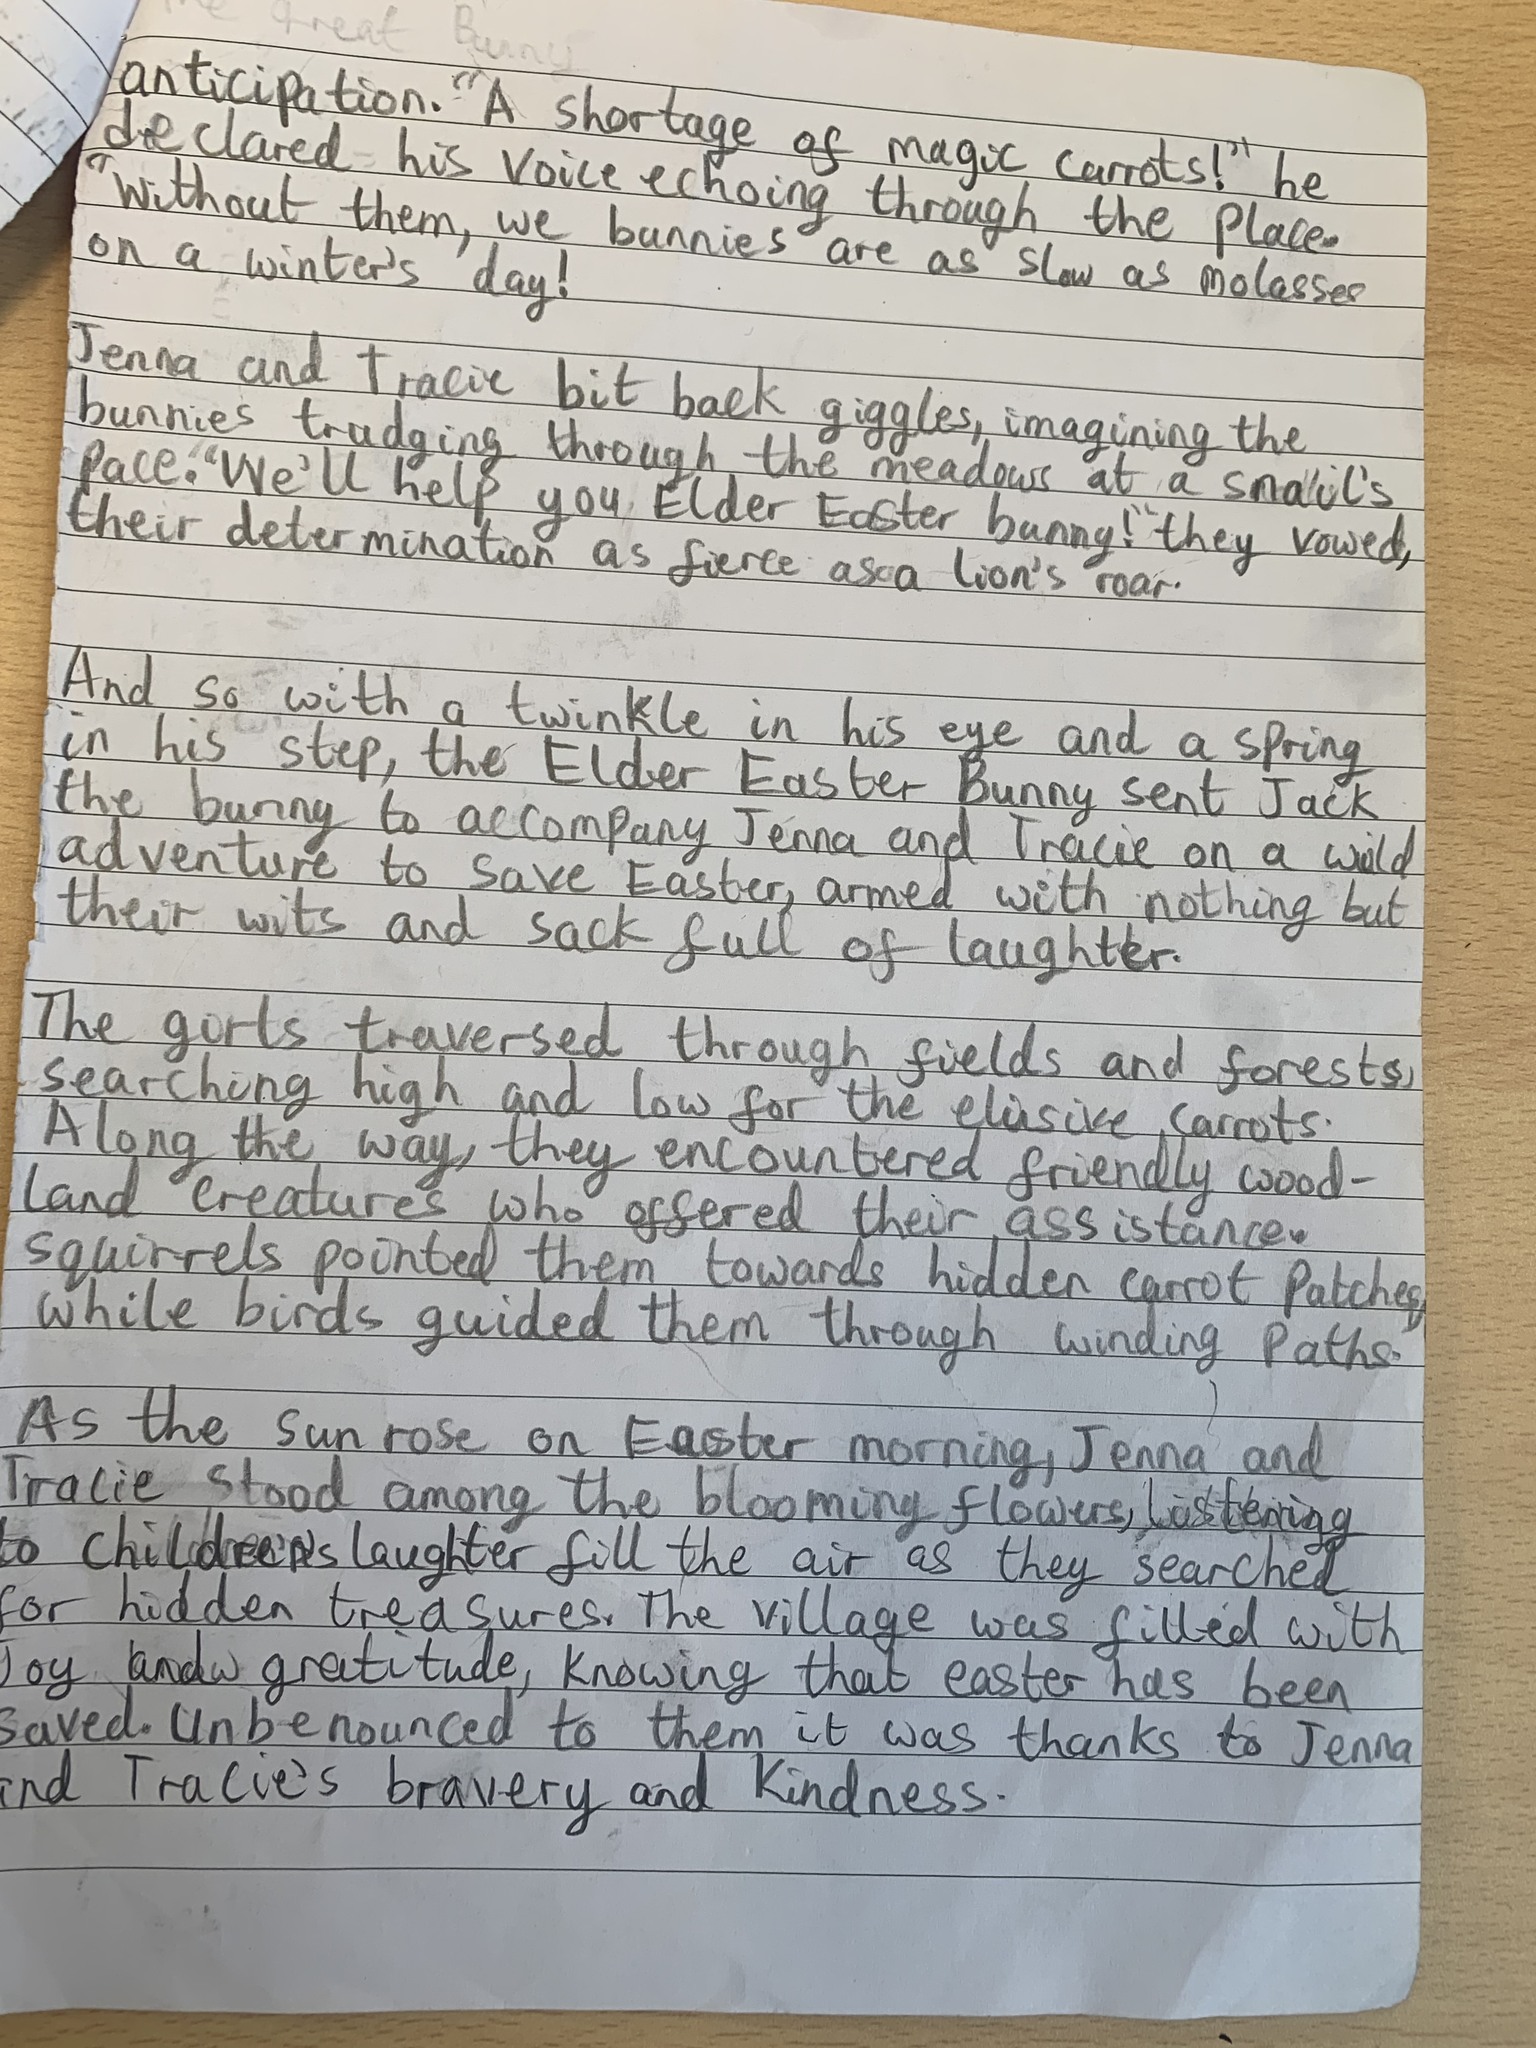 The Great Bunny
anticipation. "A shortage of magic carrots!" he
declared his voice echoing through the place.
"Without them, we bunnies are as slow as molasses
on a winter's day!
Jenna and Tracie bit back giggles, imagining the
bunnies trudging through the meadows at a snail's
pace. "We'll help you Elder Easter bunny!" they vowed,
their determination as fierce as a lion's roar.
And so with a twinkle in his eye and a spring
in his step, the Elder Easter Bunny sent Jack
the bunny to accompany Jenna and Tracie on a wild
adventure to save Easter, armed with nothing but
their wits and sack full of laughter.
The gorls traversed through fields and forests,
searching high and low for the elusive carrots.
Along the way, they encountered friendly wood-
land creatures who offered their assistance.
squirrels pointed them towards hidden carrot patches,
while birds guided them through winding paths.
As the sun rose on Easter morning, Jenna and
Tracie stood among the blooming flowers, listening
to children's laughter fill the air as they searched
for hidden treasures. The village was filled with
Joy and gratitude, knowing that easter has been
saved. Unbenounced to them it was thanks to Jenna
and Tracie's bravery and kindness.